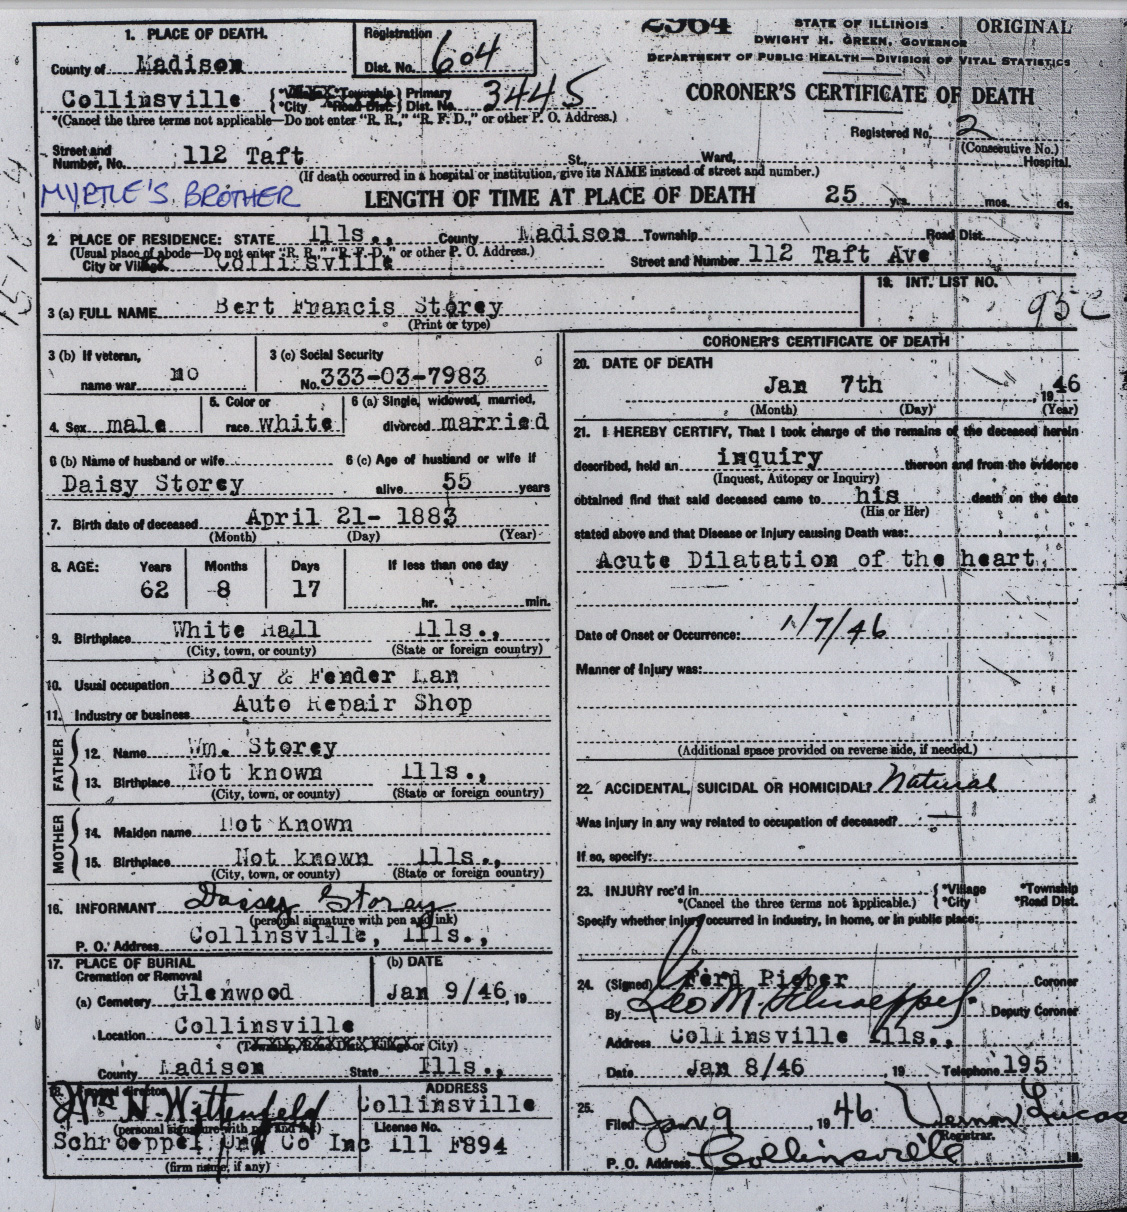 2964 STATE OF ILLINOIS ORIGINAL
DWIGHT H. GREEN, GOVERNOR
DEPARTMENT OF PUBLIC HEALTH—DIVISION OF VITAL STATISTICS
CORONER'S CERTIFICATE OF DEATH
Registered No. 2
(Consecutive No.)
1. PLACE OF DEATH.
County of Madison
Registration
Dist. No. 604
Collinsville {*Township *City *Road Dist.} Primary Dist. No. 3445
*(Cancel the three terms not applicable—Do not enter "R. R.," "R. F. D.," or other P. O. Address.)
Street and
Number, No. 112 Taft St., Ward, Hospital.
(If death occurred in a hospital or institution, give its NAME instead of street and number.)
MYRTLE'S BROTHER
LENGTH OF TIME AT PLACE OF DEATH 25 yrs. mos. ds.
2. PLACE OF RESIDENCE: STATE Ills., County Madison Township Road Dist.
(Usual place of abode—Do not enter "R. R.," "R. F. D.," or other P. O. Address.)
City or Village Collinsville Street and Number 112 Taft Ave
3 (a) FULL NAME Bert Francis Storey
(Print or type)
19. INT. LIST NO.
95c
3 (b) If veteran,
name war no
3 (c) Social Security
No. 333-03-7983
4. Sex male
5. Color or
race white
6 (a) Single, widowed, married,
divorced married
6 (b) Name of husband or wife
Daisy Storey
6 (c) Age of husband or wife if
alive 55 years
7. Birth date of deceased April 21- 1883
(Month) (Day) (Year)
8. AGE: Years Months Days If less than one day
62 8 17 hr. min.
9. Birthplace White Hall Ills.,
(City, town, or county) (State or foreign country)
10. Usual occupation Body & Fender Man
11. Industry or business Auto Repair Shop
FATHER
12. Name Wm. Storey
13. Birthplace Not known Ills.,
(City, town, or county) (State or foreign country)
MOTHER
14. Maiden name Not Known
15. Birthplace Not known Ills.,
(City, town, or county) (State or foreign country)
16. INFORMANT Daisey Storey
(personal signature with pen and ink)
P. O. Address Collinsville, Ills.,
17. PLACE OF BURIAL
Cremation or Removal
(b) DATE
(a) Cemetery Glenwood Jan 9/46 19
Location Collinsville
(Township, Road Dist., Village or City)
County Madison State Ills.,
18. Funeral director
Wm N. Wittenfeld
(personal signature with pen and ink)
Schroeppel Und Co Inc
(firm name, if any)
ADDRESS
Collinsville
License No.
Ill F894
CORONER'S CERTIFICATE OF DEATH
20. DATE OF DEATH
Jan 7th 1946
(Month) (Day) (Year)
21. I HEREBY CERTIFY, That I took charge of the remains of the deceased herein
described, held an inquiry thereon and from the evidence
(Inquest, Autopsy or Inquiry)
obtained find that said deceased came to his death on the date
(His or Her)
stated above and that Disease or Injury causing Death was:
Acute Dilatation of the heart
Date of Onset or Occurrence: 1/7/46
Manner of Injury was:
(Additional space provided on reverse side, if needed.)
22. ACCIDENTAL, SUICIDAL OR HOMICIDAL? Natural
Was injury in any way related to occupation of deceased? —
If so, specify:
23. INJURY rec'd in {*Village *Township *City *Road Dist.
*(Cancel the three terms not applicable.)
Specify whether injury occurred in industry, in home, or in public place:
24. (Signed) Ferd Pieper Coroner
By Leo M. Schroeppel. Deputy Coroner
Address Collinsville Ills.,
Date Jan 8/46 19 Telephone 195
25.
Filed Jan 9, 1946 Vernon Lucas
Registrar.
P. O. Address Collinsville Ill.